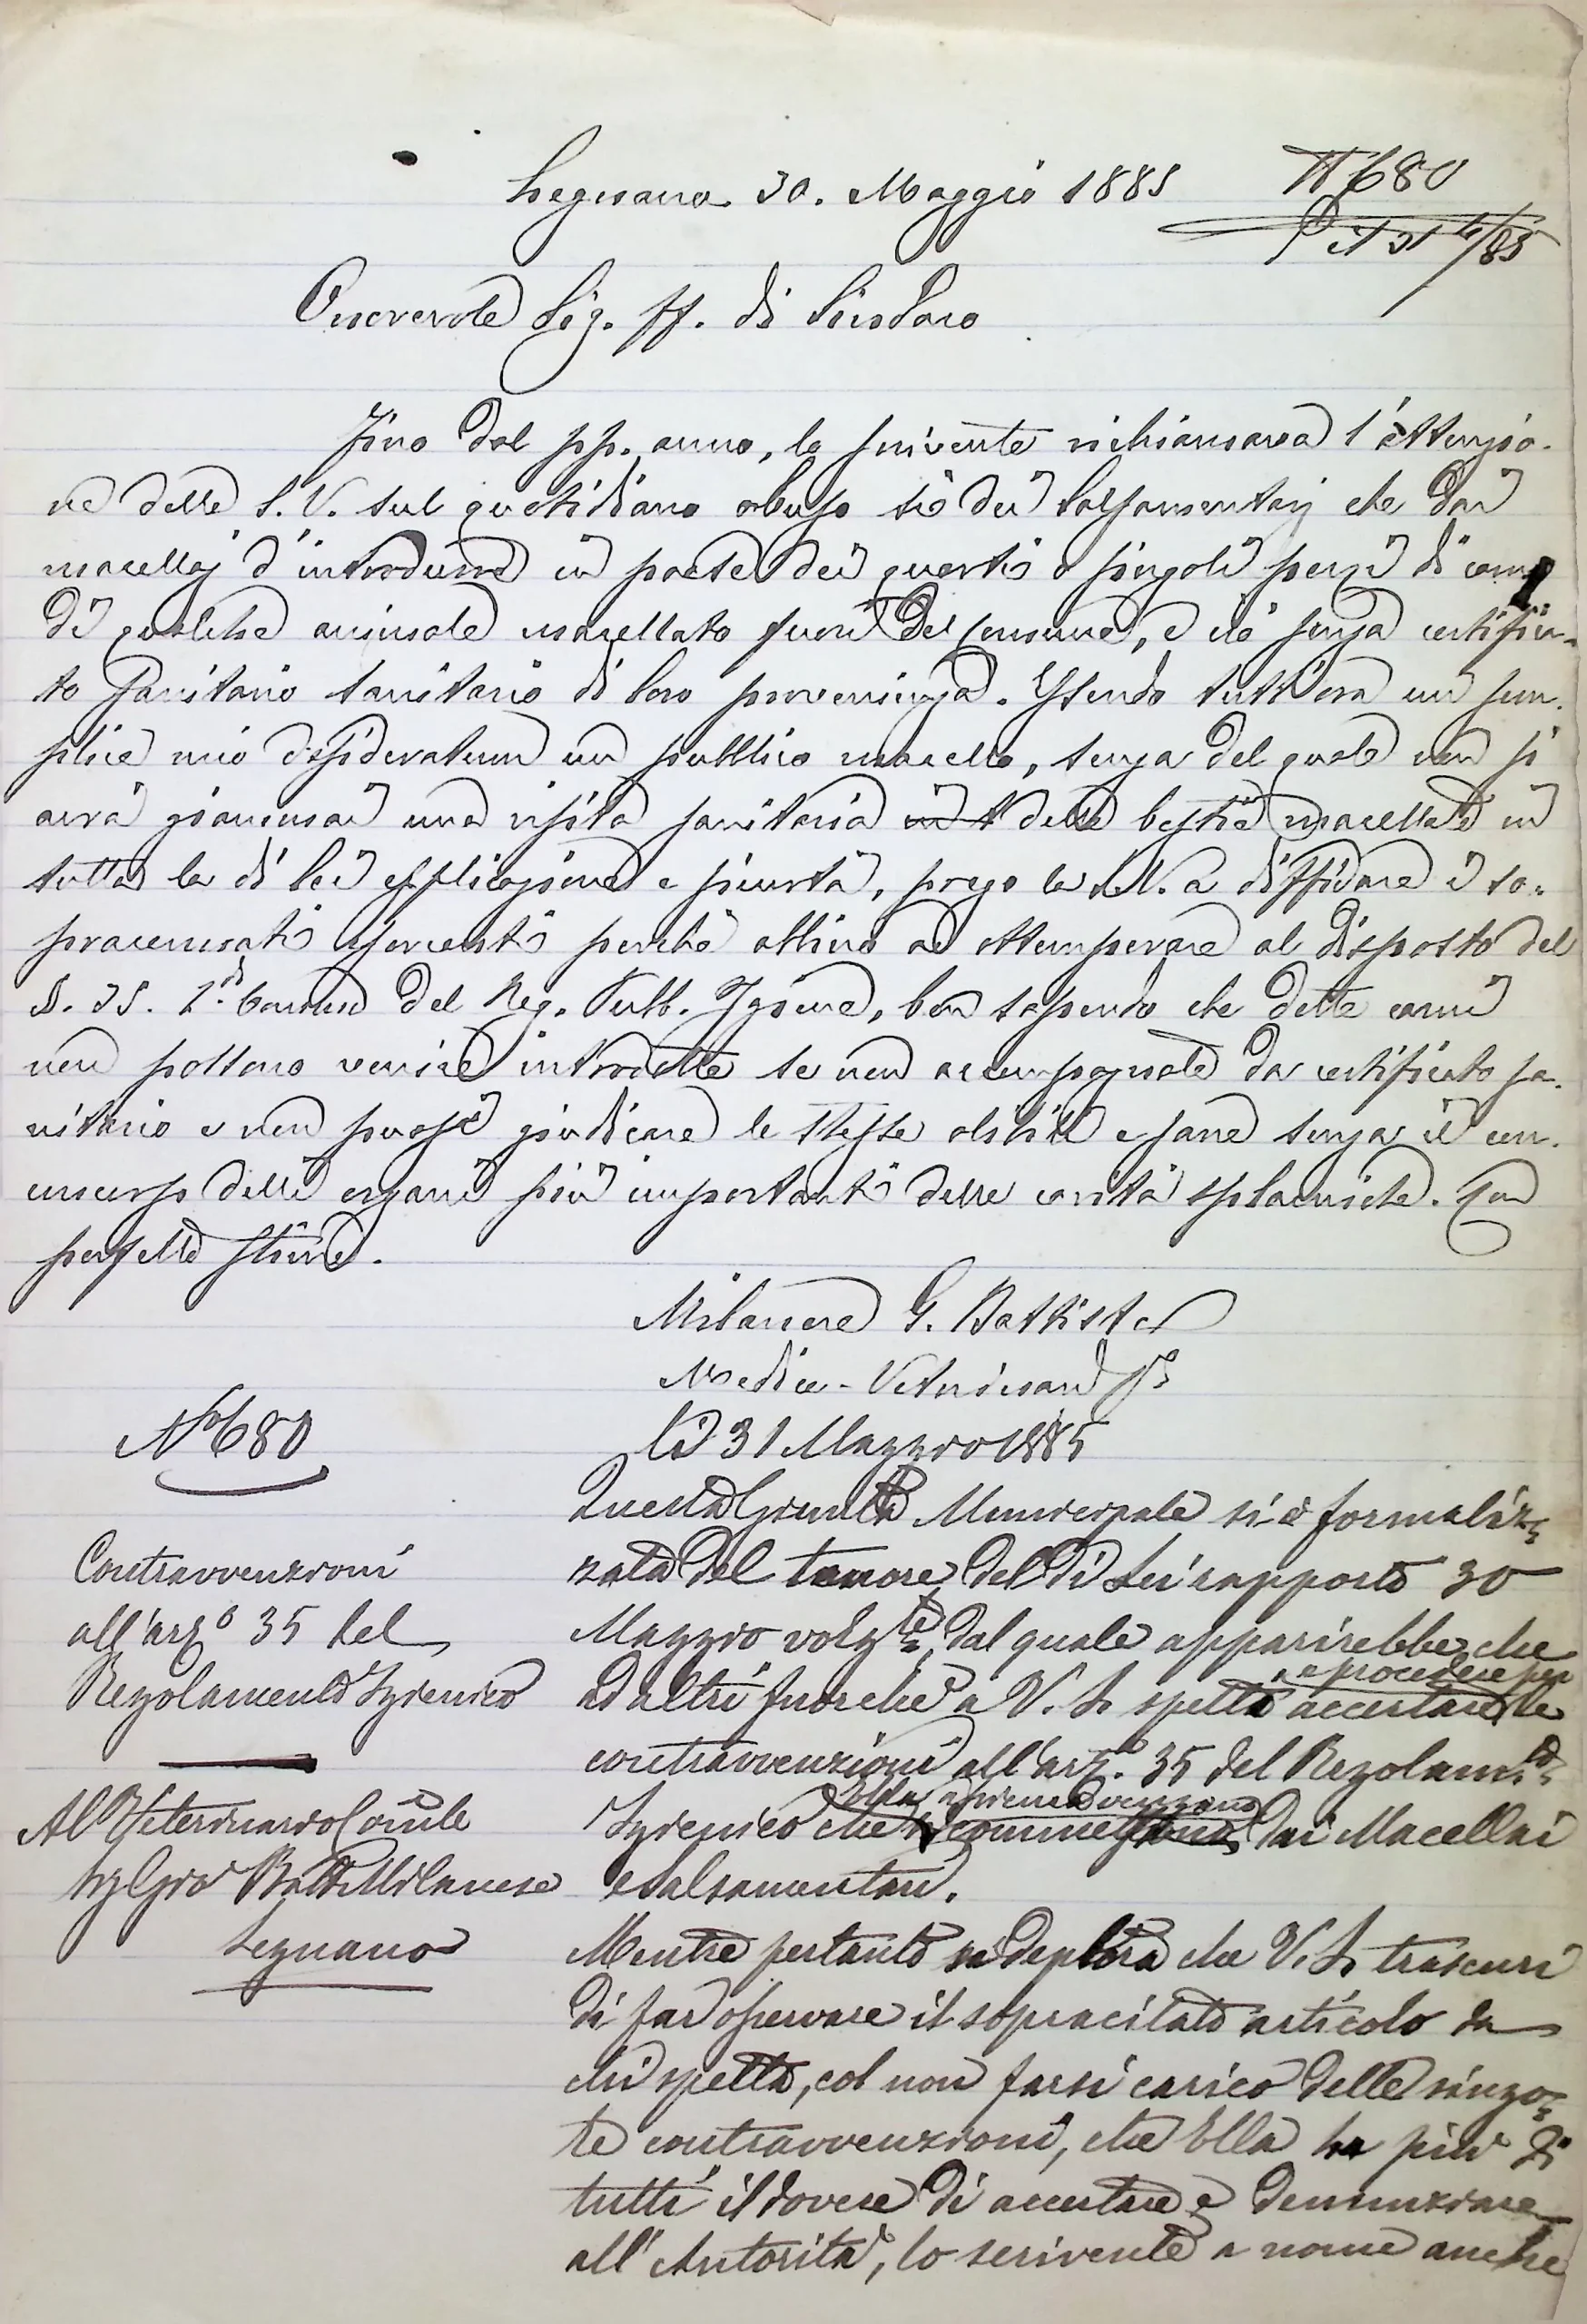 Legnano 30. Maggio 1885
N 680
P. il 31 5/85
Onorevole Sig. ff. di Sindaco
Fino dal pp. anno, lo scrivente richiamava l'attenzio-
ne della S. V. sul quotidiano abuso sìo dei Salsamentarj che dai
macellaj d'introdurre in paese dei quarti o singoli pezzi di carne
di qualche animale macellato fuori del Comune, e ciò senza certifica-
to sanitario sanitario di loro provenienza. Essendo tutt'ora un sem-
plice mio desideratum un pubblico macello, senza del quale non si
avrà giammai una visita sanitaria delle bestie macellate in
tutta la di lei esplicazione e sicurtà, prego la S.V. a diffidare i so-
pracennati esercenti perchè abbino ad ottemperare al disposto del
§. 35. Comma del Reg. Pubb. Igiene, ben sapendo che dette carni
non possono venire introdotte se non accompagnate da certificato sa-
nitario e non puossi giudicare le stesse abili e sane senza il con-
corso delli organi più importanti delle cavità splacniche. Con
perfetta stima.
Milanese G. Battista
Medico-Veterinario
N° 680
Li 31 Maggio 1885
Contravvenzioni
all'art° 35 del
Regolamento Igienico
Al Veterinario Comle
Sig Gio Batt Milanese
Legnano
Questa Giunta Municipale si è formaliz-
zata del tenore del di Lei rapporto 30
Maggio volgte, dal quale apparirebbe che
ad altri fuorchè a V. S. spetta accertare e procedere per le
contravvenzioni all'art°. 35 del Regolamto
Igienico che dai Macellai
e salsamentari.
Mentre pertanto si deplora che V. S. trascuri
di far osservare il sopracitato articolo da
chi spetta, col non farsi carico delle singo-
le contravvenzioni, che Ella ha più di
tutti il dovere di accertare e denunziare
all'Autorità, lo scrivente a nome anche